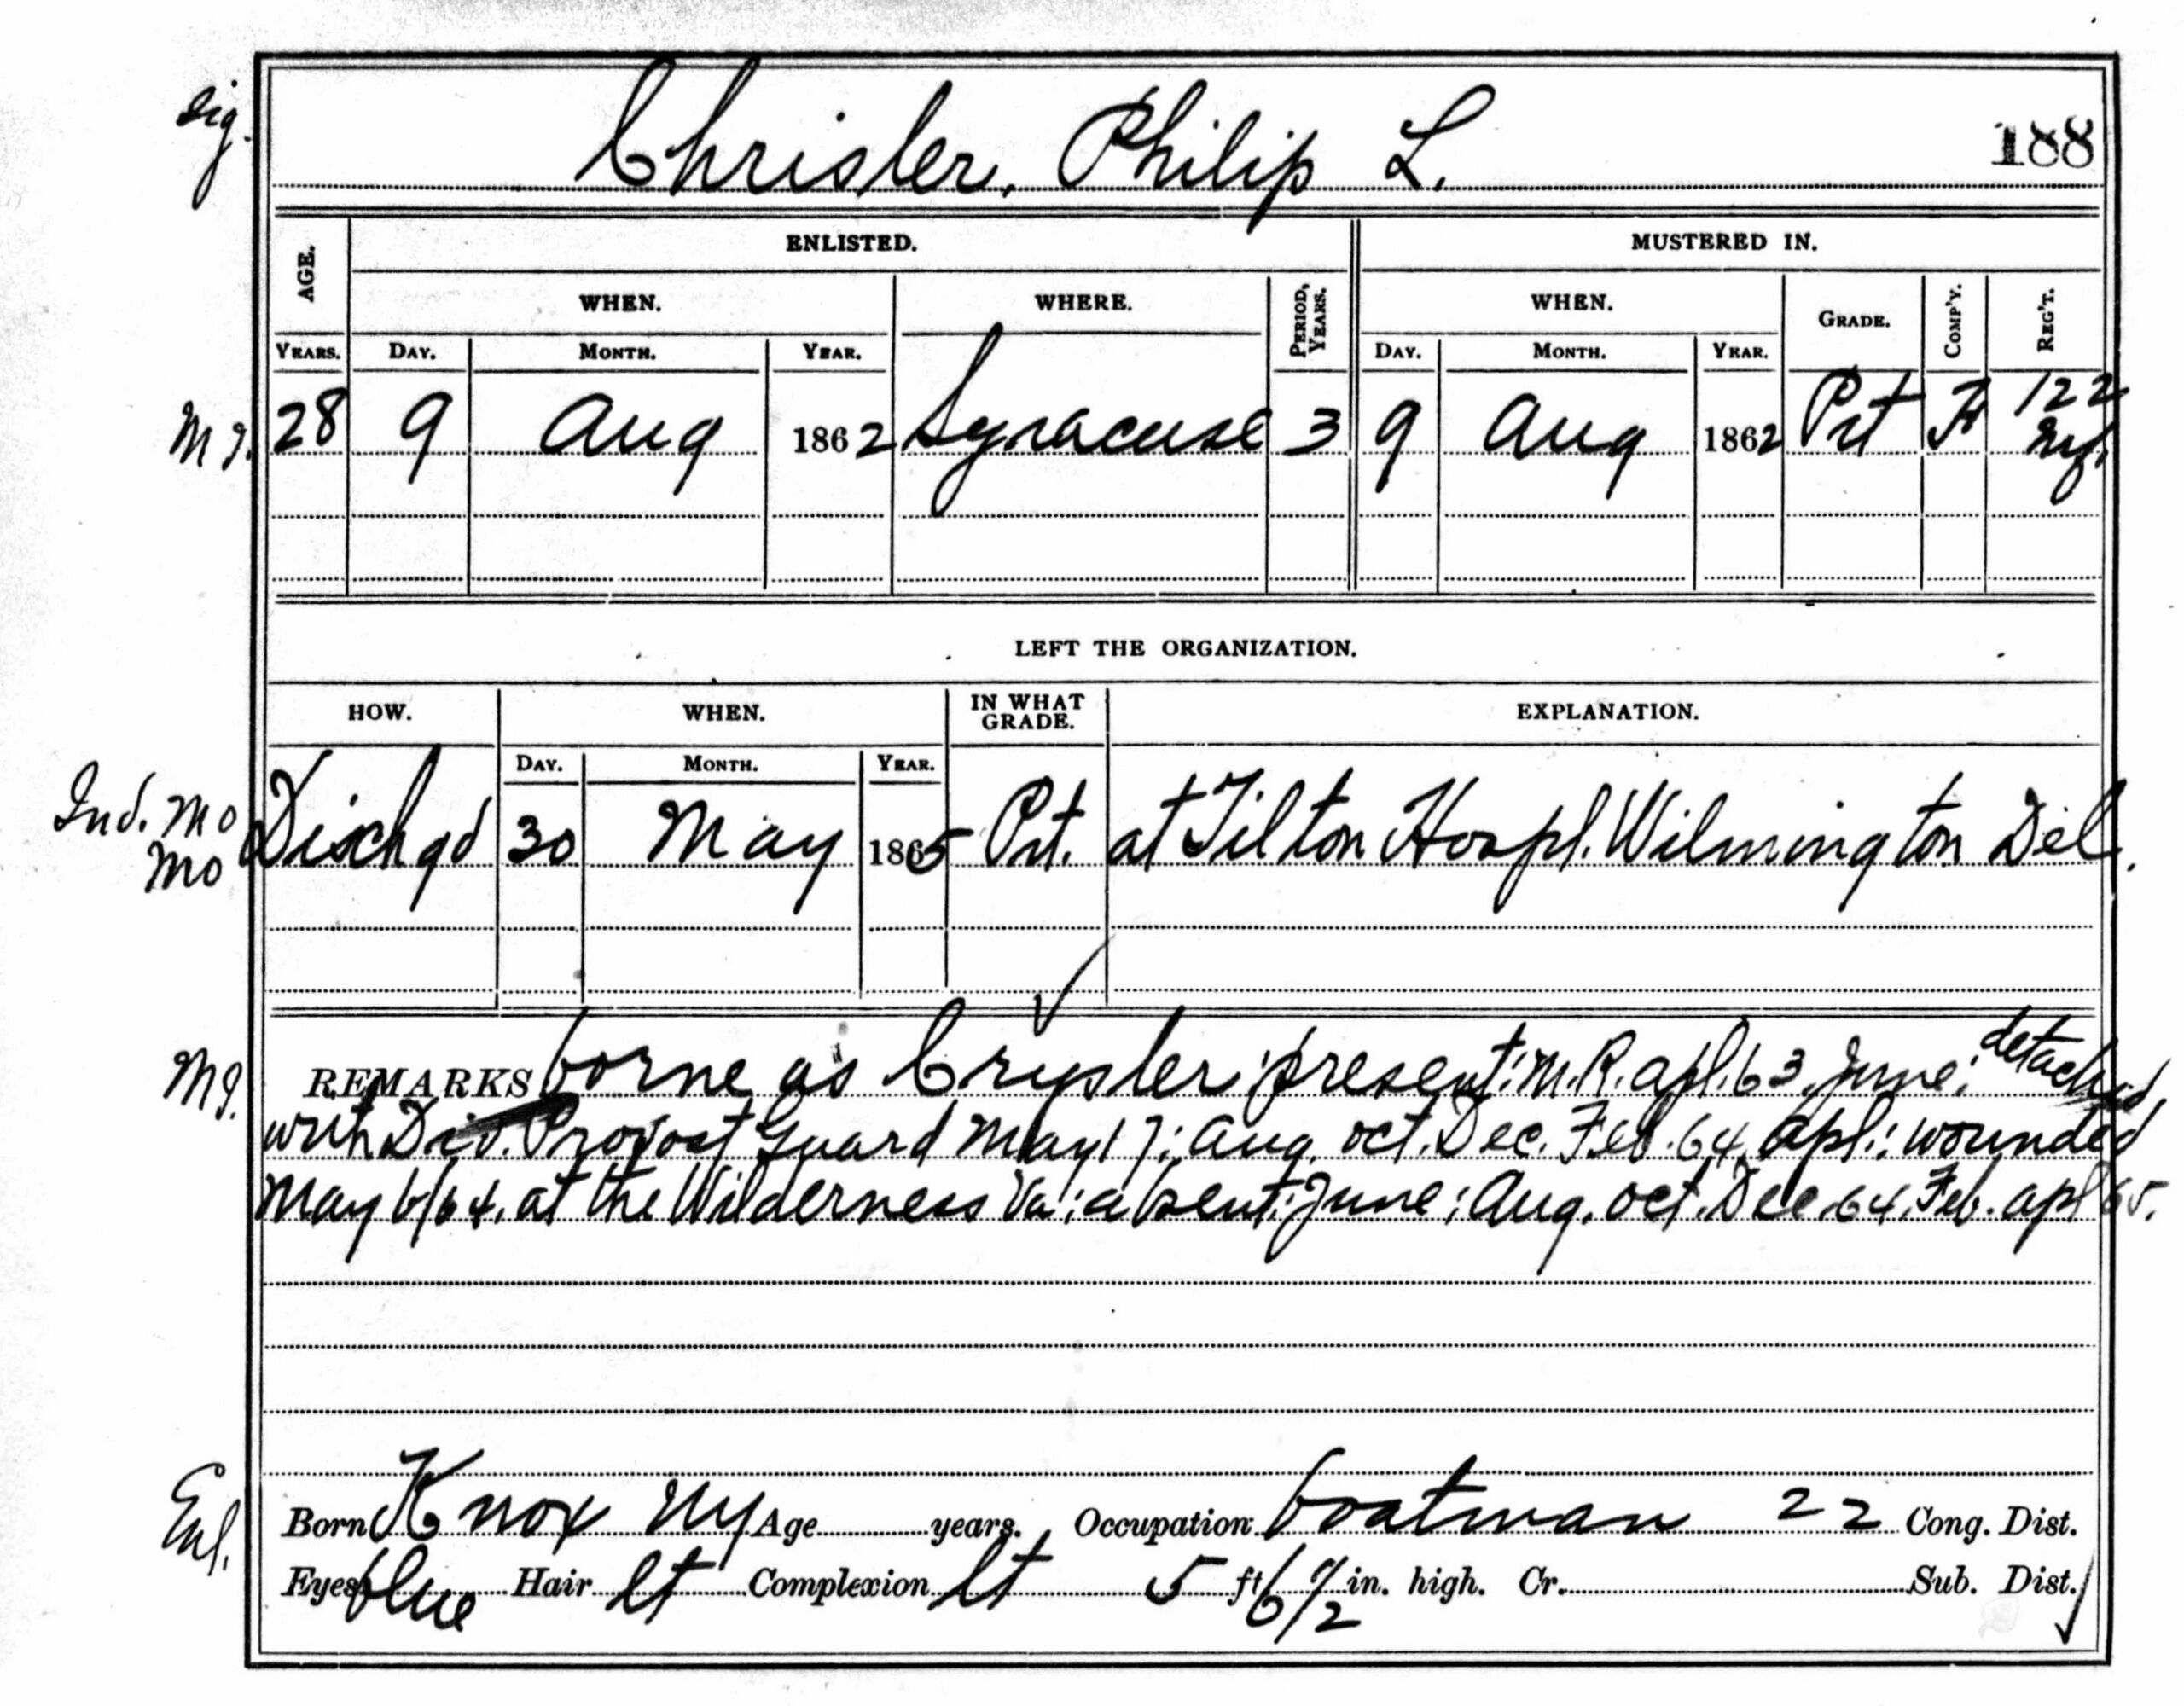 sig.
Chrisler, Philip L. 188
AGE. ENLISTED. MUSTERED IN.
WHEN. WHERE. PERIOD, YEARS. WHEN. GRADE. COMP'Y. REG'T.
YEARS. DAY. MONTH. YEAR. DAY. MONTH. YEAR.
28 9 Aug 1862 Syracuse 3 9 Aug 1862 Prt 122
Ny.
LEFT THE ORGANIZATION.
HOW. WHEN. IN WHAT GRADE. EXPLANATION.
DAY. MONTH. YEAR.
Ind. Mo
Mo Dischgd 30 May 1865 Prt. at Tilton Hospl. Wilmington Del.
REMARKS borne as Crysler; present: M.R. apl. 63. June; detached
with Div. Provost Guard May 17; Aug. Oct. Dec. Feb. 64. Apl.; wounded
May 6/64. at the Wilderness Va; absent: June; Aug. Oct. Dec. 64. Feb. apl 65.
Enl. Born Knox Ny Age years. Occupation boatman 22 Cong. Dist.
Eyes blue Hair lt Complexion lt 5 ft 6 1/2 in. high. Cr. Sub. Dist.